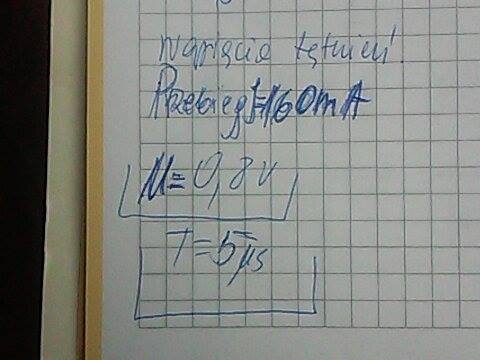 Napięcie tętnień.
Przebieg I=160mA
U=0,8V
T=5μs